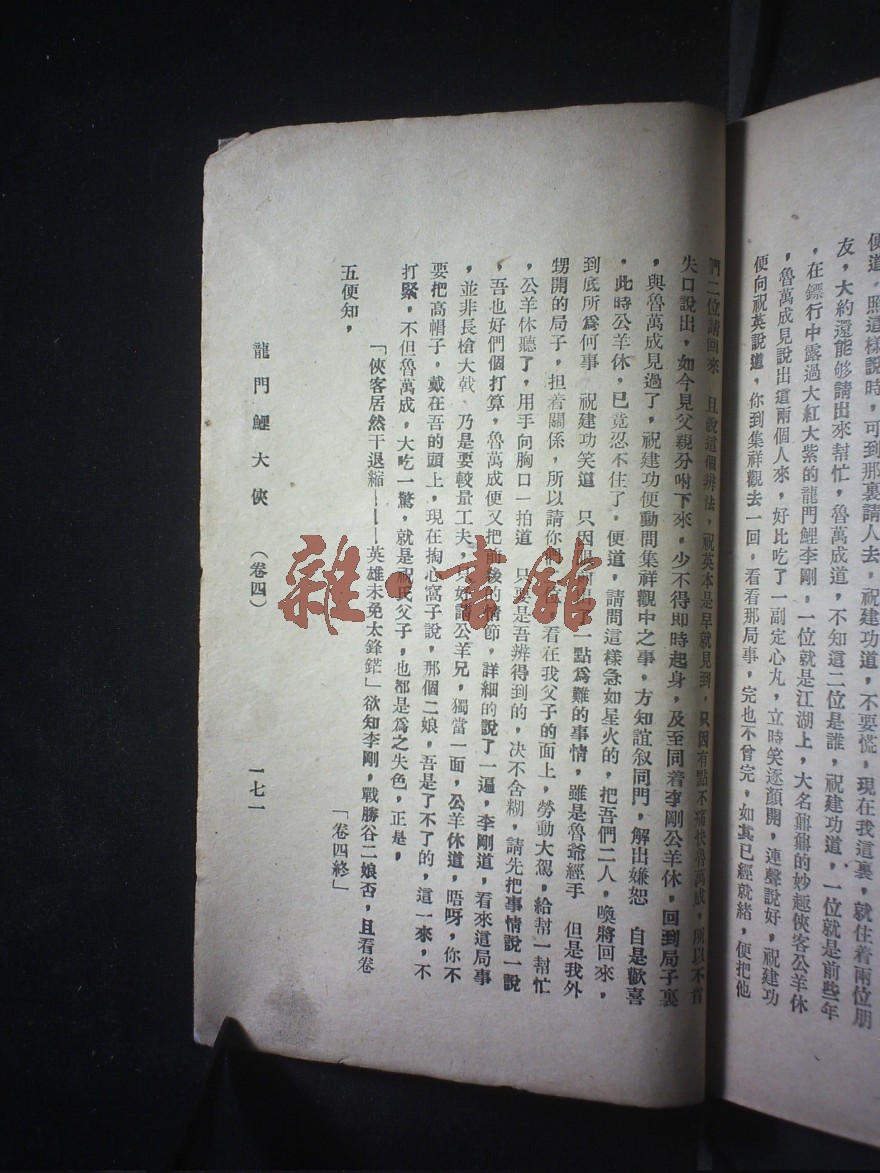 便道，照這樣說時，可到那裏請人去，祝建功道，不要慌，現在我這裏，就住着兩位朋
友，大約還能够請出來幫忙，魯萬成道，不知這二位是誰，祝建功道，一位就是前些年
，在鏢行中露過大紅大紫的龍門鯉李剛，一位就是江湖上，大名鼎鼎的妙趣俠客公羊休
，魯萬成見說出這兩個人來，好比吃了一副定心丸，立時笑逐顏開，連聲說好，祝建功
便向祝英說道，你到集祥觀去一回，看看那局事，完也不曾完，如其已經就緒，便把他
們二位請回來　且說這個辦法，祝英本是早就見到，只因有點不痛快魯萬成，所以不肯
失口說出，如今見父親分咐下來，少不得即時起身，及至同着李剛公羊休，回到局子裏
，與魯萬成見過了，祝建功便動問集祥觀中之事，方知誼叙同門，解出嫌恕　自是歡喜
，此時公羊休，已竟忍不住了，便道，請問這樣急如星火的，把吾們二人，喚將回來，
到底所爲何事　祝建功笑道　只因
了一點爲難的事情，雖是魯爺經手　但是我外
甥開的局子，担着關係，所以請你們
看在我父子的面上，勞動大駕，給幫一幫忙
，公羊休聽了，用手向胸口一拍道　只要是吾辨得到的，决不含糊，請先把事情說一說
，吾也好們個打算，魯萬成便又把前後的情節，詳細的說了一遍，李剛道，看來這局事
，並非長槍大戟、乃是要較量工夫，只好請公羊兄，獨當一面，公羊休道，唔呀，你不
要把高帽子，戴在吾的頭上，現在掏心窩子說，那個二娘，吾是了不了的，這一來，不
打緊，不但魯萬成，大吃一驚，就是祝氏父子，也都是爲之失色，正是，
「俠客居然干退縮———英雄未免太鋒鋩」欲知李剛，戰勝谷二娘否，且看卷
五便知，
「卷四終」
龍門鯉大俠　（卷四）　一七一
雜·書館